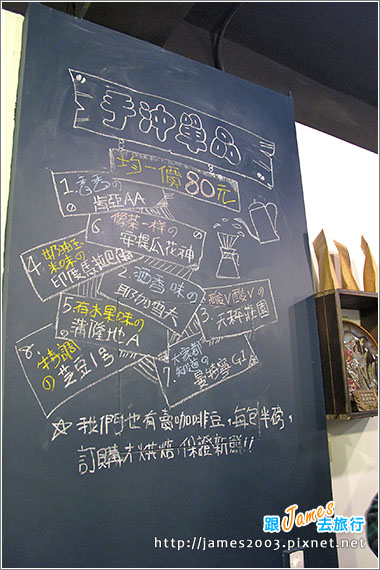 手沖單品
均一價80元
1.香香の
肯亞AA
6.像茶一樣の
瓜提瓜花神
4.奶油玉
米味の
印度馬拉巴
2.酒香味の
耶加雪夫
3.酸V酸V の
天秤莊園
5.有水果味の
蒲隆地A
8.特調
の
芝豆1号
7.大家都
知道の
曼特寧G1
☆我們也有賣咖啡豆,每包半磅,
訂購才烘焙 保證新鮮!!
跟James去旅行
http://james2003.pixnet.net